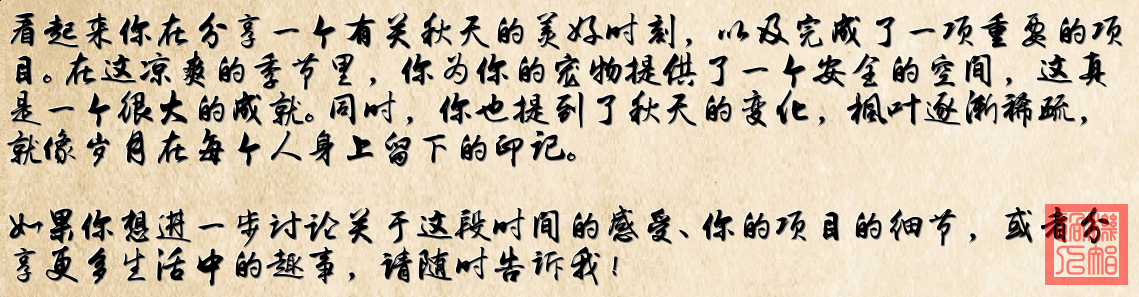 看起来你在分享一个有关秋天的美好时刻，以及完成了一项重要的项
目。在这凉爽的季节里，你为你的宠物提供了一个安全的空间，这真
是一个很大的成就。同时，你也提到了秋天的变化，枫叶逐渐稀疏，
就像岁月在每个人身上留下的印记。
如果你想进一步讨论关于这段时间的感受、你的项目的细节，或者分
享更多生活中的趣事，请随时告诉我！